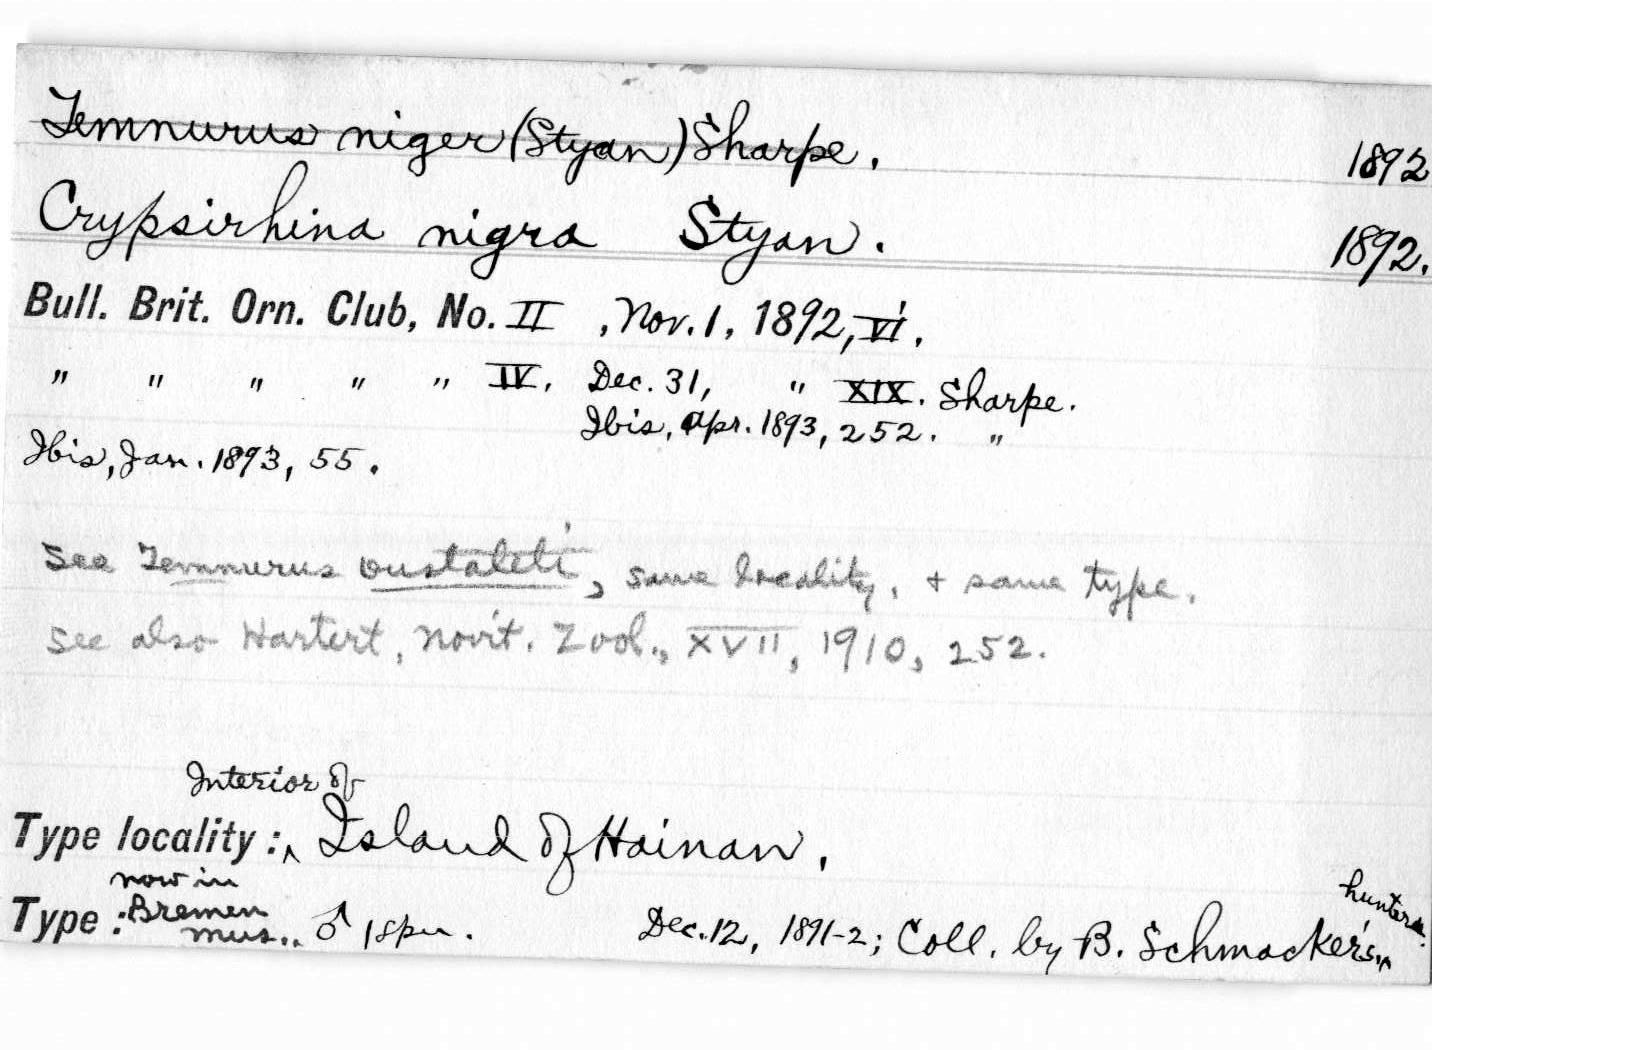 Temnurus niger (Styan) Sharpe. 1892
Crypsirhina nigra Styan. 1892.
Bull. Brit. Orn. Club, No. II, Nov. 1, 1892, VI.
" " " " " IV. Dec. 31, " XIX. Sharpe.
Ibis, Apr. 1893, 252. "
Ibis, Jan. 1893, 55.
See Temnurus oustaleti, same locality, + same type.
See also Hartert, Novit. Zool., XVII, 1910, 252.
Interior of
Type locality: ^ Island of Hainan.
now in hunters.
Type: Bremen Mus.. ♂ 1 spm. Dec. 12, 1891-2; Coll. by B. Schmacker's ^